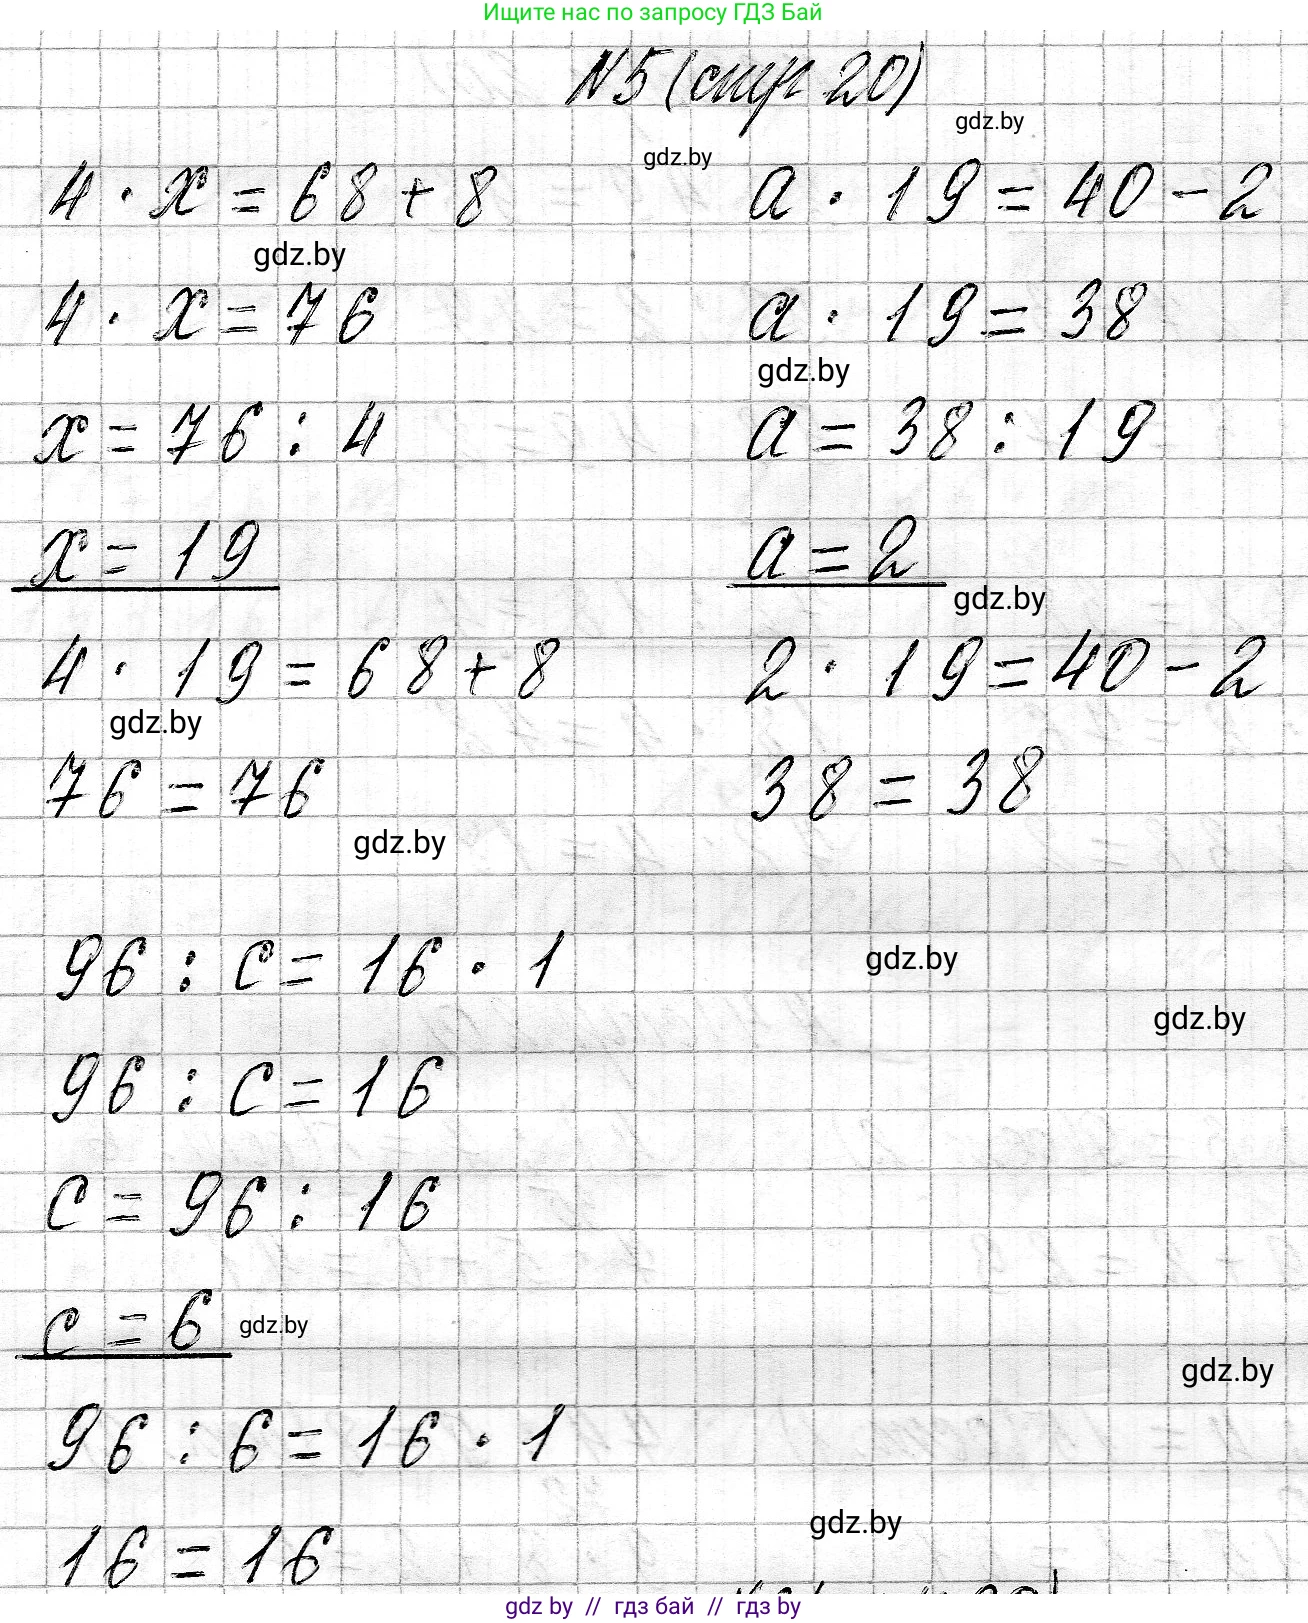 Ищите нас по запросу ГДЗ Бай
N5 (стр 20)
gdz.by
gdz.by
4 · x = 68 + 8
a · 19 = 40 - 2
gdz.by
4 · x = 76
a · 19 = 38
gdz.by
x = 76 : 4
a = 38 : 19
x = 19
a = 2
gdz.by
4 · 19 = 68 + 8
2 · 19 = 40 - 2
gdz.by
76 = 76
38 = 38
gdz.by
96 : c = 16 · 1
gdz.by
gdz.by
96 : c = 16
c = 96 : 16
c = 6
gdz.by
gdz.by
96 : 6 = 16 · 1
gdz.by
16 = 16
gdz by // гдз бай // гдз by